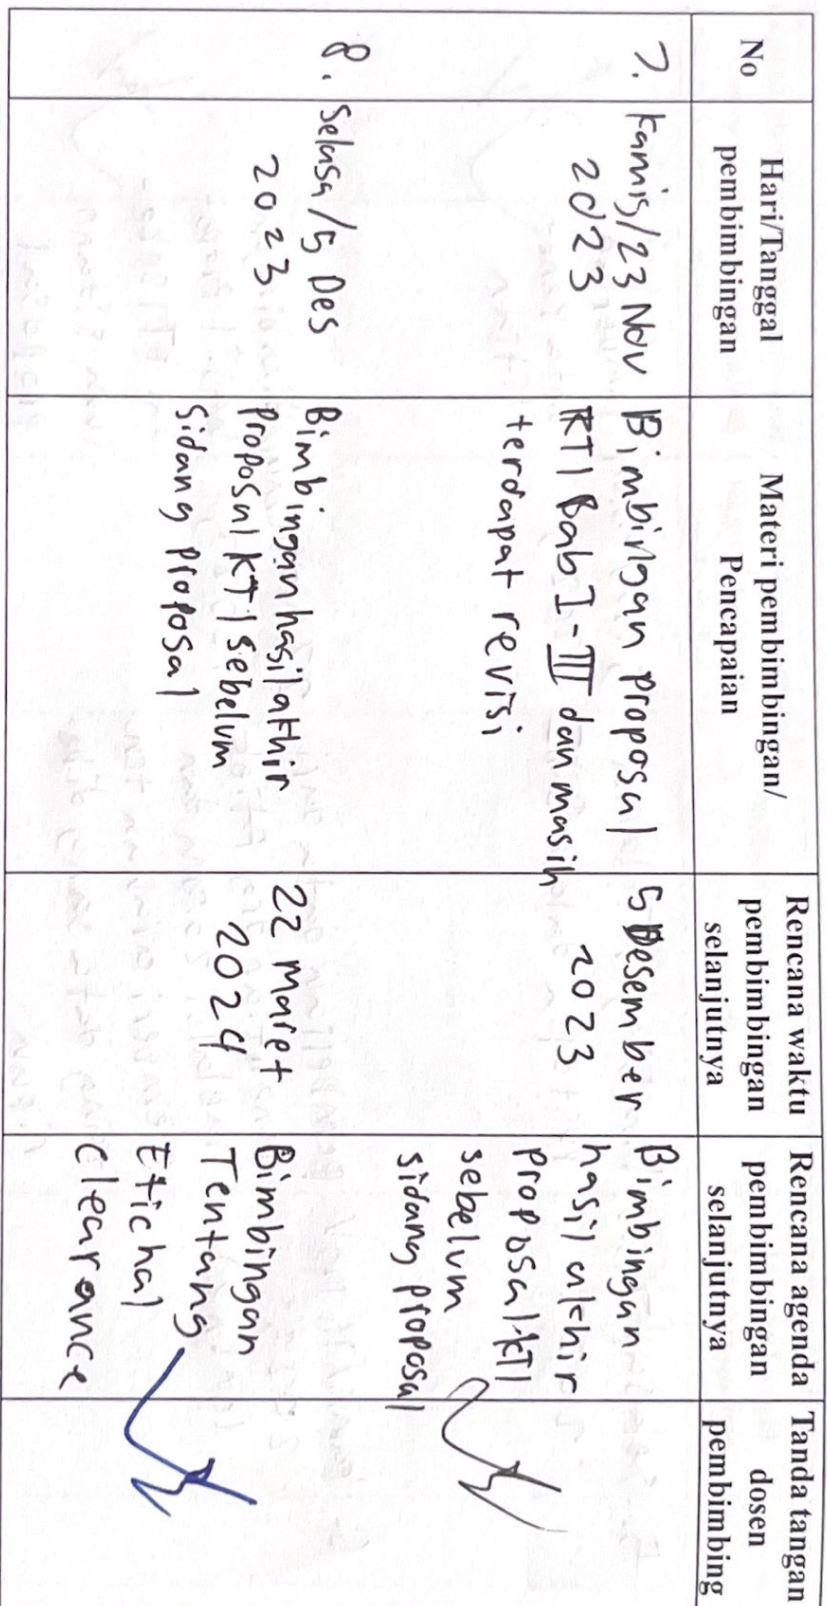 No
Hari/Tanggal
pembimbingan
Materi pembimbingan/
Pencapaian
Rencana waktu
pembimbingan
selanjutnya
Rencana agenda
pembimbingan
selanjutnya
Tanda tangan
dosen
pembimbing
7.
Kamis/23 Nov
2023
Bimbingan proposal
KTI Bab I-III dan masih
terdapat revisi
5 Desember
2023
Bimbingan
hasil akhir
proposal KTI
sebelum
sidang proposal
8.
Selasa/5 Des
2023
Bimbingan hasil akhir
proposal KTI sebelum
sidang proposal
22 Maret
2024
Bimbingan
Tentang
Etichal
clearance